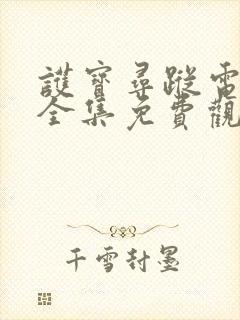 護寶尋蹤電
全集免費觀
千雪封墨